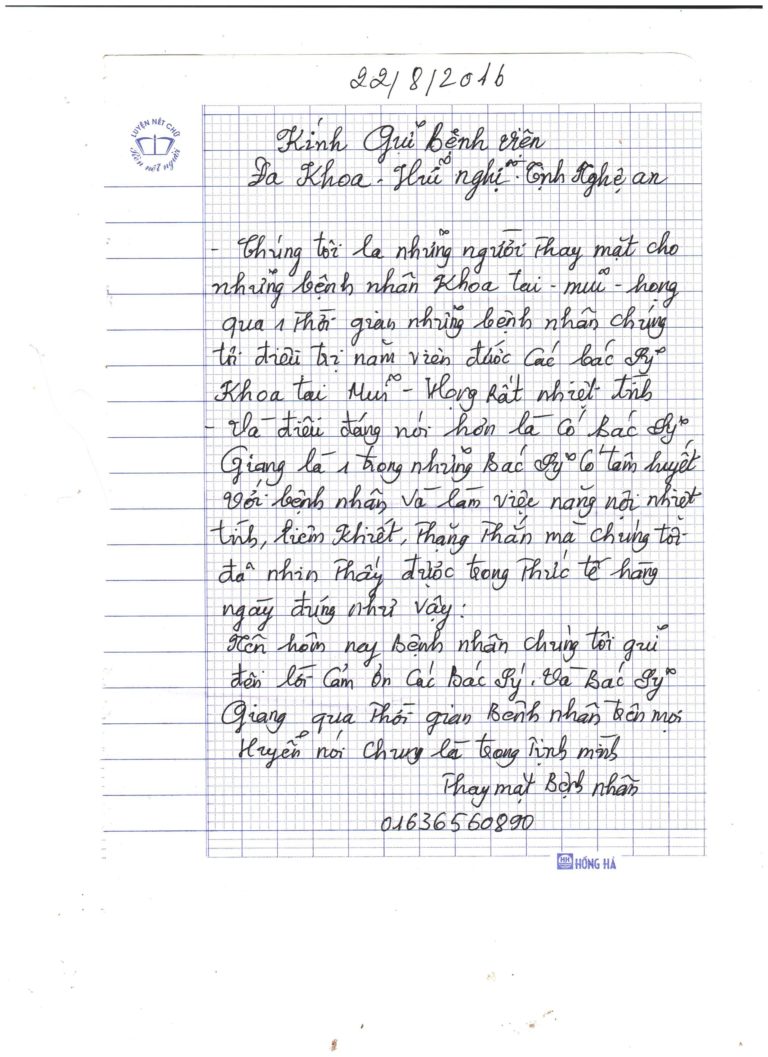 22/8/2016
LUYỆN NÉT CHỮ
Rèn nết người
Kính Gửi Bệnh viện
Đa Khoa - Hữu nghị - Tỉnh Nghệ an
- Chúng tôi là những người Thay mặt cho
những bệnh nhân Khoa tai - mũi - họng
qua 1 Thời gian những bệnh nhân chúng
tôi điều trị nằm viên được Các bác sỹ
Khoa tai Mũi - Họng Rất nhiệt tình
- Và điều đáng nói hơn là Có Bác Sỹ
Giang là 1 trong những Bác sỹ Có tâm huyết
Với bệnh nhân và làm việc năng nổi nhiệt
tình, liêm Khiết, Thẳng Thắn mà chúng tôi
đã nhìn Thấy được trong Thức tế hàng
ngày đúng như vậy:
Nên hôm nay Bệnh nhân chúng tôi gửi
đến lời Cảm ơn Các Bác Sý. Và Bác Sỹ
Giang qua Thời gian Bệnh nhân trên mọi
Huyện nói Chung là trong Tịnh mình
Thay mặt Bệnh nhân
01636560890
HH HỒNG HÀ